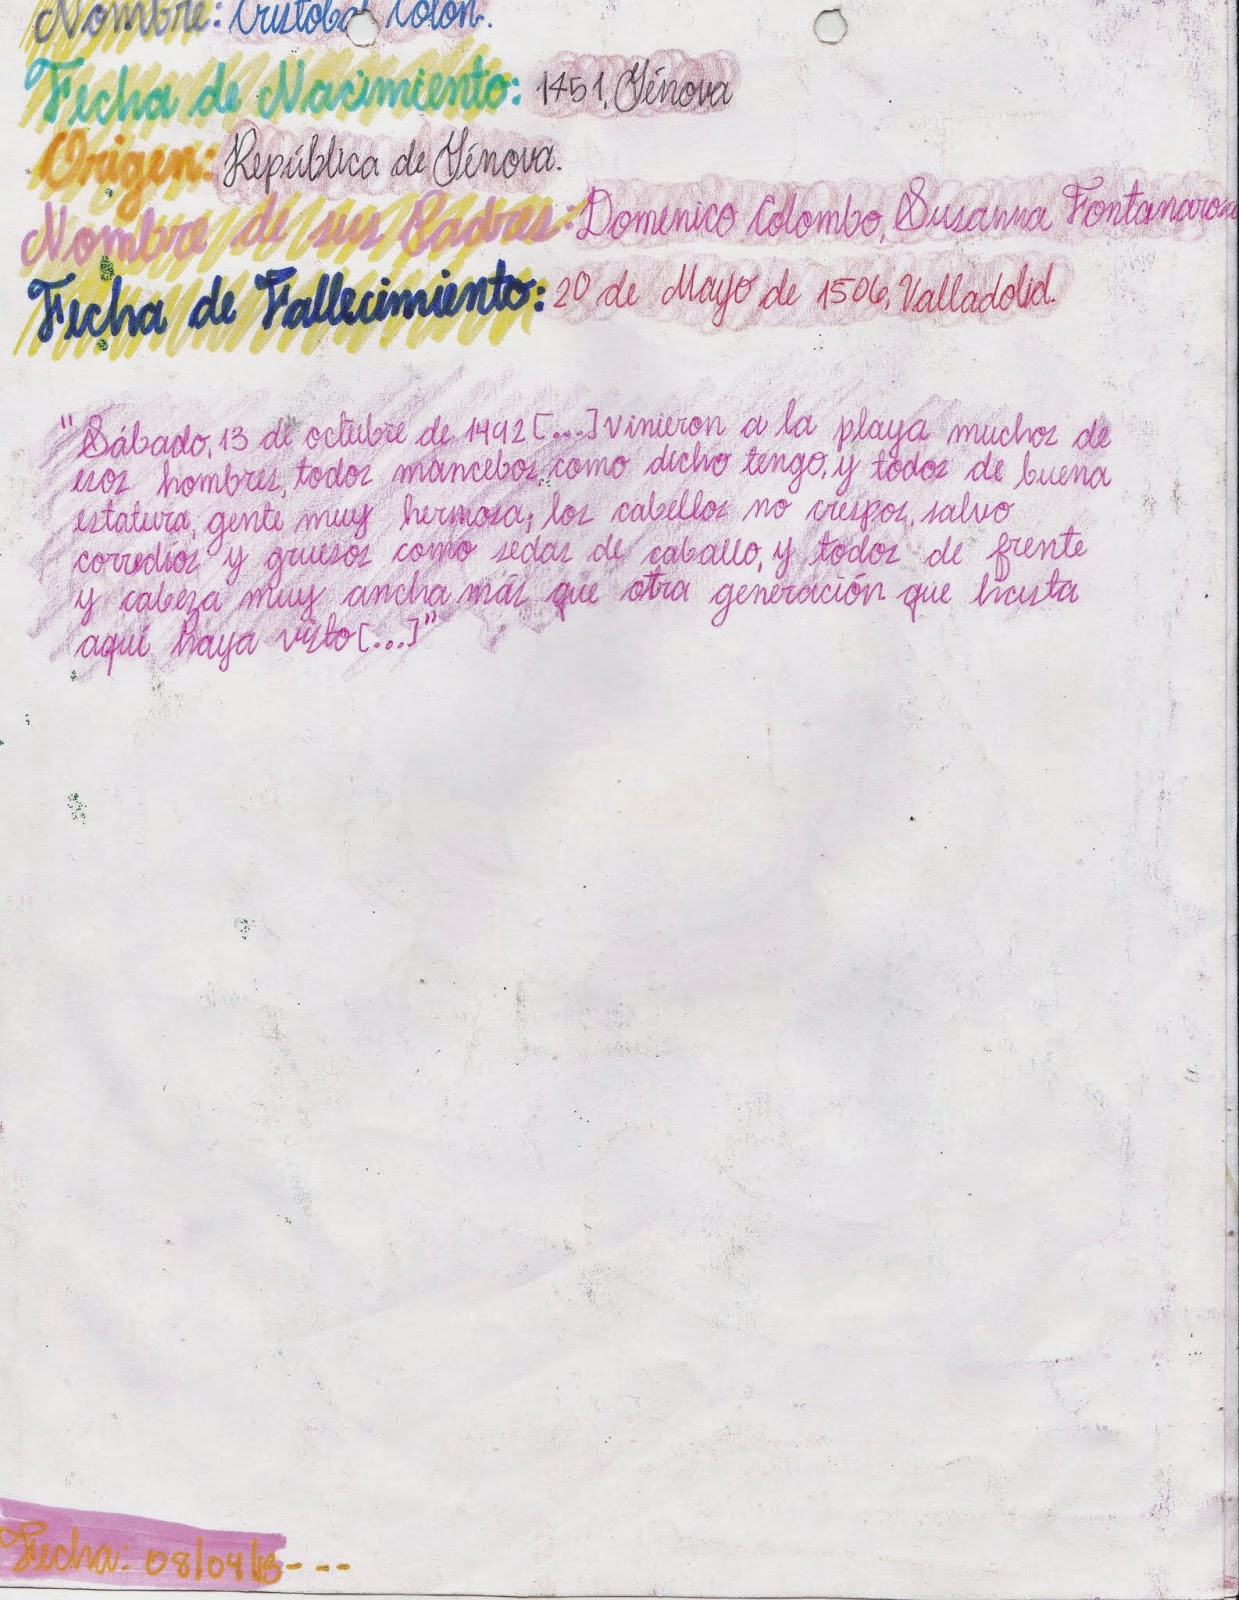 Nombre: Cristobal Colón.
Fecha de Nacimiento: 1451, Génova
Origen: República de Génova.
Nombre de sus Padres: Domenico Colombo, Susanna Fontanarosa
Fecha de Fallecimiento: 20 de Mayo de 1506, Valladolid.
"Sábado, 13 de octubre de 1492 [...] vinieron a la playa muchos de
esos hombres, todos mancebos, como dicho tengo, y todos de buena
estatura, gente muy hermosa; los cabellos no crespos, salvo
corredíos y gruesos como sedas de caballo, y todos de frente
y cabeza muy ancha más que otra generación que hasta
aquí haya visto [...]"
Fecha: 08/04/13---